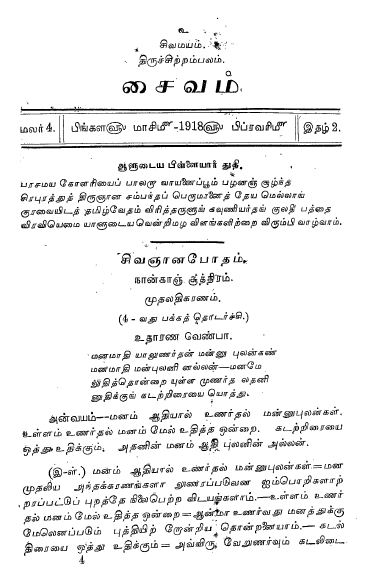 உ
சிவமயம்.
திருச்சிற்றம்பலம்.
சைவம்.
மலர் 4. பிங்கள௵ மாசி௴-1918௵ பிப்ரவரி௴ இதழ் 2.
ஆளுடைய பிள்ளையார் துதி.
பரசமய கோளரியைப் பாலரு வாயணைப்பூம் பழனஞ் சூழ்ந்த
சிரபுரத்துத் திருஞான சம்பந்தப் பெருமானைத் தேய மெல்லாங்
குரவையிடத் தமிழ்வேதம் விரித்தருளுங் கவுணியர்தங் குலதீ பத்தை
விரவியெமை யாளுடையவென்றிமழ விளங்களிற்றை விரும்பி வாழ்வாம்.
சிவஞானபோதம்.
நான்காஞ் சூத்திரம்.
முதலதிகரணம்.
(4 - வது பக்கத் தொடர்ச்சி.)
உதாரண வெண்பா.
மனமாதி யாலுணர்தன் மன்னு புலன்கண்
மனமாதி மன்புலனி னல்லன்—மனமே
லுதித்தொன்றை யுள்ள முணர்த லதனி
னுதிக்குங் கடற்றிரையை யொத்து.
அன்வயம்—மனம் ஆதியால் உணர்தல் மன்னுபுலன்கள்.
உள்ளம் உணர்தல் மனம் மேல் உதித்த ஒன்றை. கடற்றிரையை
ஒத்து உதிக்கும், அதனின் மனம் ஆதி புலனின் அல்லன்.
(இ-ள்.) மனம் ஆதியால் உணர்தல் மன்னுபுலன்கள்=மன
முதலிய அந்தக்கரணங்களா லுணரப்படுவன ஐம்பொறிகளாற்
றரப்பட்டுப் புறத்தே நிலைபெற்ற விடயங்களாம்.—உள்ளம் உணர்
தல் மனம் மேல் உதித்த ஒன்றை=ஆன்மா உணர்வது மனத்துக்கு
மேலெனப்படும் புத்தியிற் றோன்றிய தொன்றனையாம்.— கடல்
திரையை ஒத்து உதிக்கும்= அவ்விரு வேறுணர்வும் கடலிடை
4